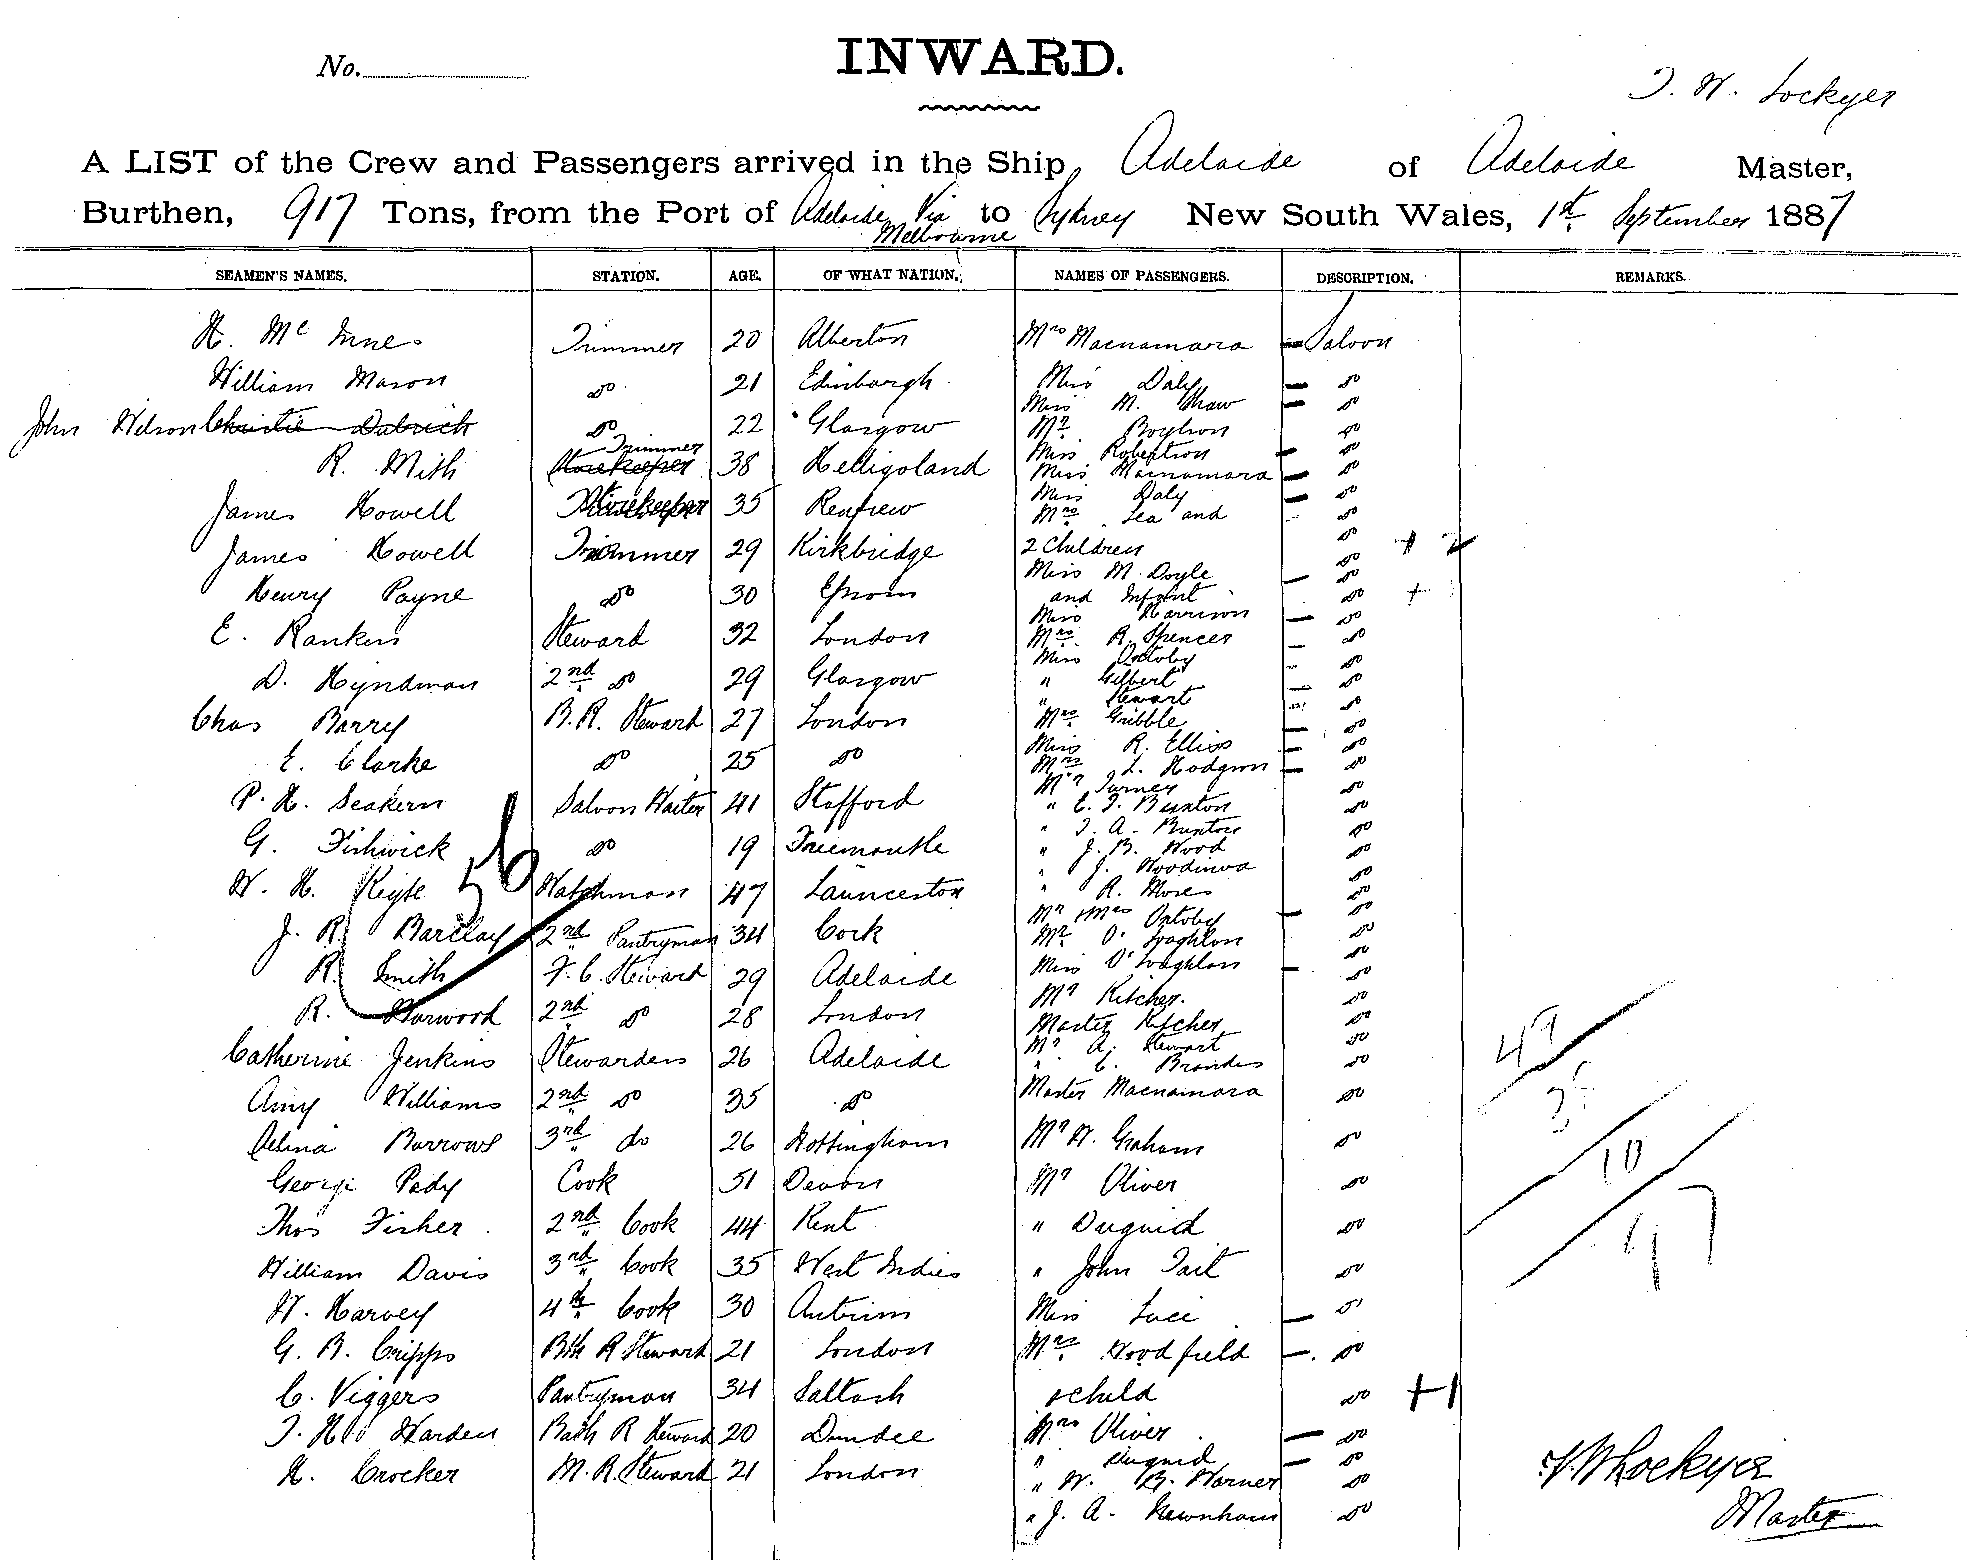 No.
INWARD.
T. W. Lockyer
A LIST of the Crew and Passengers arrived in the Ship Adelaide of Adelaide Master,
Burthen, 917 Tons, from the Port of Adelaide Via Melbourne to Sydney New South Wales, 1st September 1887
SEAMEN'S NAMES. STATION. AGE. OF WHAT NATION. NAMES OF PASSENGERS. DESCRIPTION. REMARKS.
H. McInnes Trimmer 20 Alberton
William Mason do 21 Edinburgh
John Wilson do 22 Glasgow
R. Mith Trimmer 38 Helligoland
James Howell Storekeeper 35 Renfrew
James Howell Trimmer 29 Kirkbridge
Henry Payne do 30 Epsom
E. Rankin Steward 32 London
D. Hyndman 2nd do 29 Glasgow
Chas Barry B.R. Steward 27 London
E. Clarke do 25 do
P. H. Seakern Saloon Waiter 41 Stafford
G. Fishwick do 19 Freemantle
W. H. Keyte Watchman 47 Launceston
56
J. R. Barclay 2nd Pantryman 34 Cork
R. Smith F. C. Steward 29 Adelaide
R. Norwood 2nd do 28 London
Catherine Jenkins Stewardess 26 Adelaide
Amy Williams 2nd do 35 do
Selina Burrows 3rd do 26 Nottingham
George Pady Cook 51 Devon
Thos Fisher 2nd Cook 44 Kent
William Davis 3rd Cook 35 West Indies
W. Harvey 4th Cook 30 Antrim
G. B. Cripps Bth R Steward 21 London
C. Viggers Pantryman 34 Saltash
T. H. Harden Bath R Steward 20 Dundee
H. Crocker M. R. Steward 21 London
Mrs Macnamara Saloon
Miss Daly do
Miss M. Shaw do
Mr Boylson do
Miss Robertson do
Miss Macnamara do
Miss Daly do
Mrs Lea and do
2 Children do + 2
Miss M. Doyle do
and Infant do +
Miss Harrison do
Mrs R. Spencer do
Miss Ontoby do
" Gilbert do
" Stewart do
Mrs Gribble do
Miss R. Elliss do
Mrs L. Hodgson do
Mr Turner do
" E. T. Buxton do
" T. A. Buxton do
" J. B. Wood do
" J. Woodinwa do
" R. Moses do
Mr & Mrs Ontoby do
Mr O'Loaghlon do
Miss O'Loaghlon do
Mr Kitcher. do
Master Kitcher do
Mr A. Stewart do
" C. Brandes do
Master Macnamara do
Mr W. Graham do
Mr Oliver do
" Duguid do
" John Tait do
Miss Luci do
Mrs Woodfield do
& child do +1
Mrs Oliver do
" Duguid do
" W. B. Warner do
" J. A. Newnham do
49
38
10
97
T. W Lockyer
Master